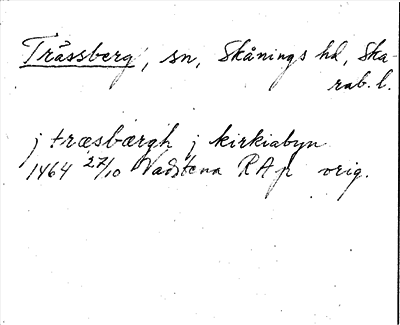 Tråssberg, sn, Skånings hd, Ska-
rab. l.
j træsbærgh j kirkiabyn
1464 27/10 Vadstena RAp orig.